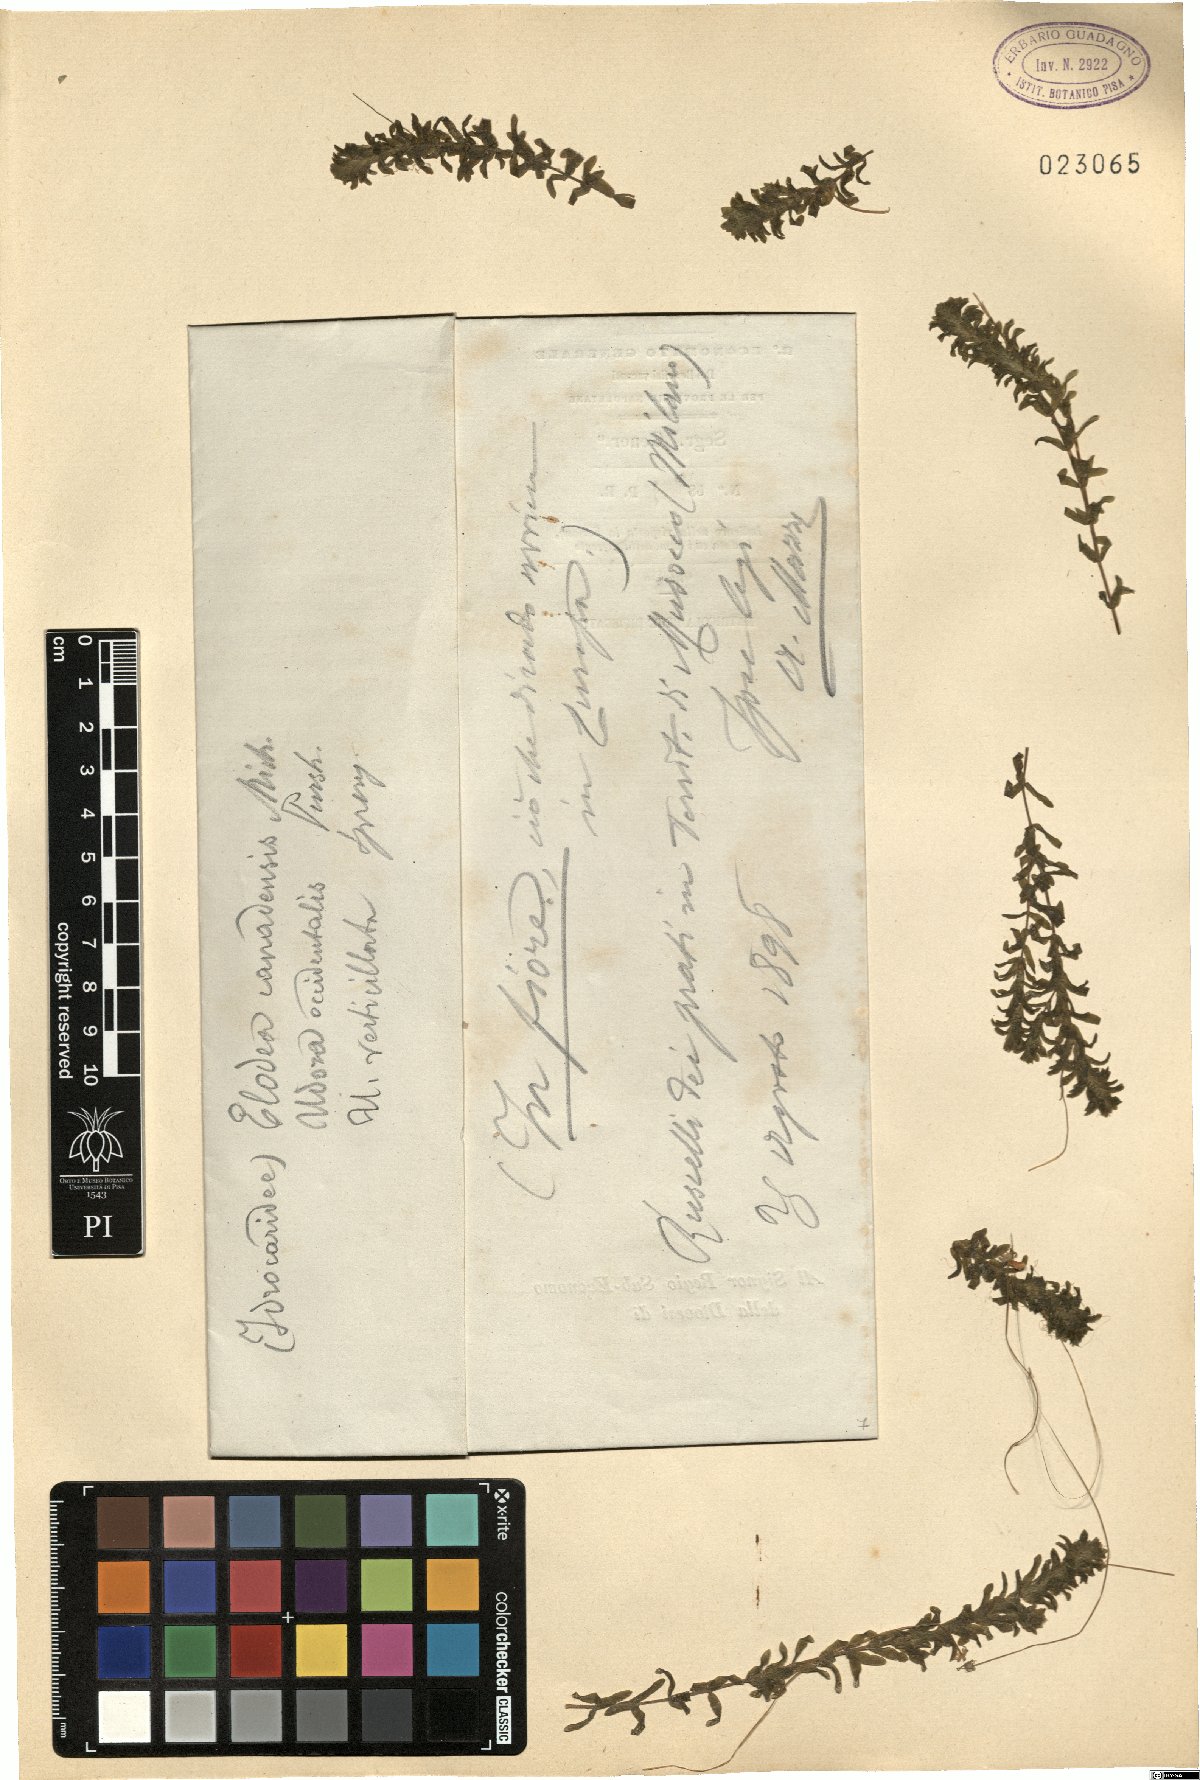 ERBARIO GUADAGNO
Inv. N. 2922
ISTIT. BOTANICO PISA
023065
(Idrocaridee) Elodea canadensis Mich.
Udora occidentalis Pursh.
U. verticillata Spreng.
(In fiore!, ciò che di rado avviene
in Europa!)
Ruscelli dei prati in Territ. di Musocco (Milano)
28 Agosto 1898 Ipse legi
cm 0 1 2 3 4 5 6 7 8 9 10
copyright reserved
ORTO E MUSEO BOTANICO
UNIVERSITÀ DI PISA
1543
PI
x-rite
colorchecker CLASSIC
mm